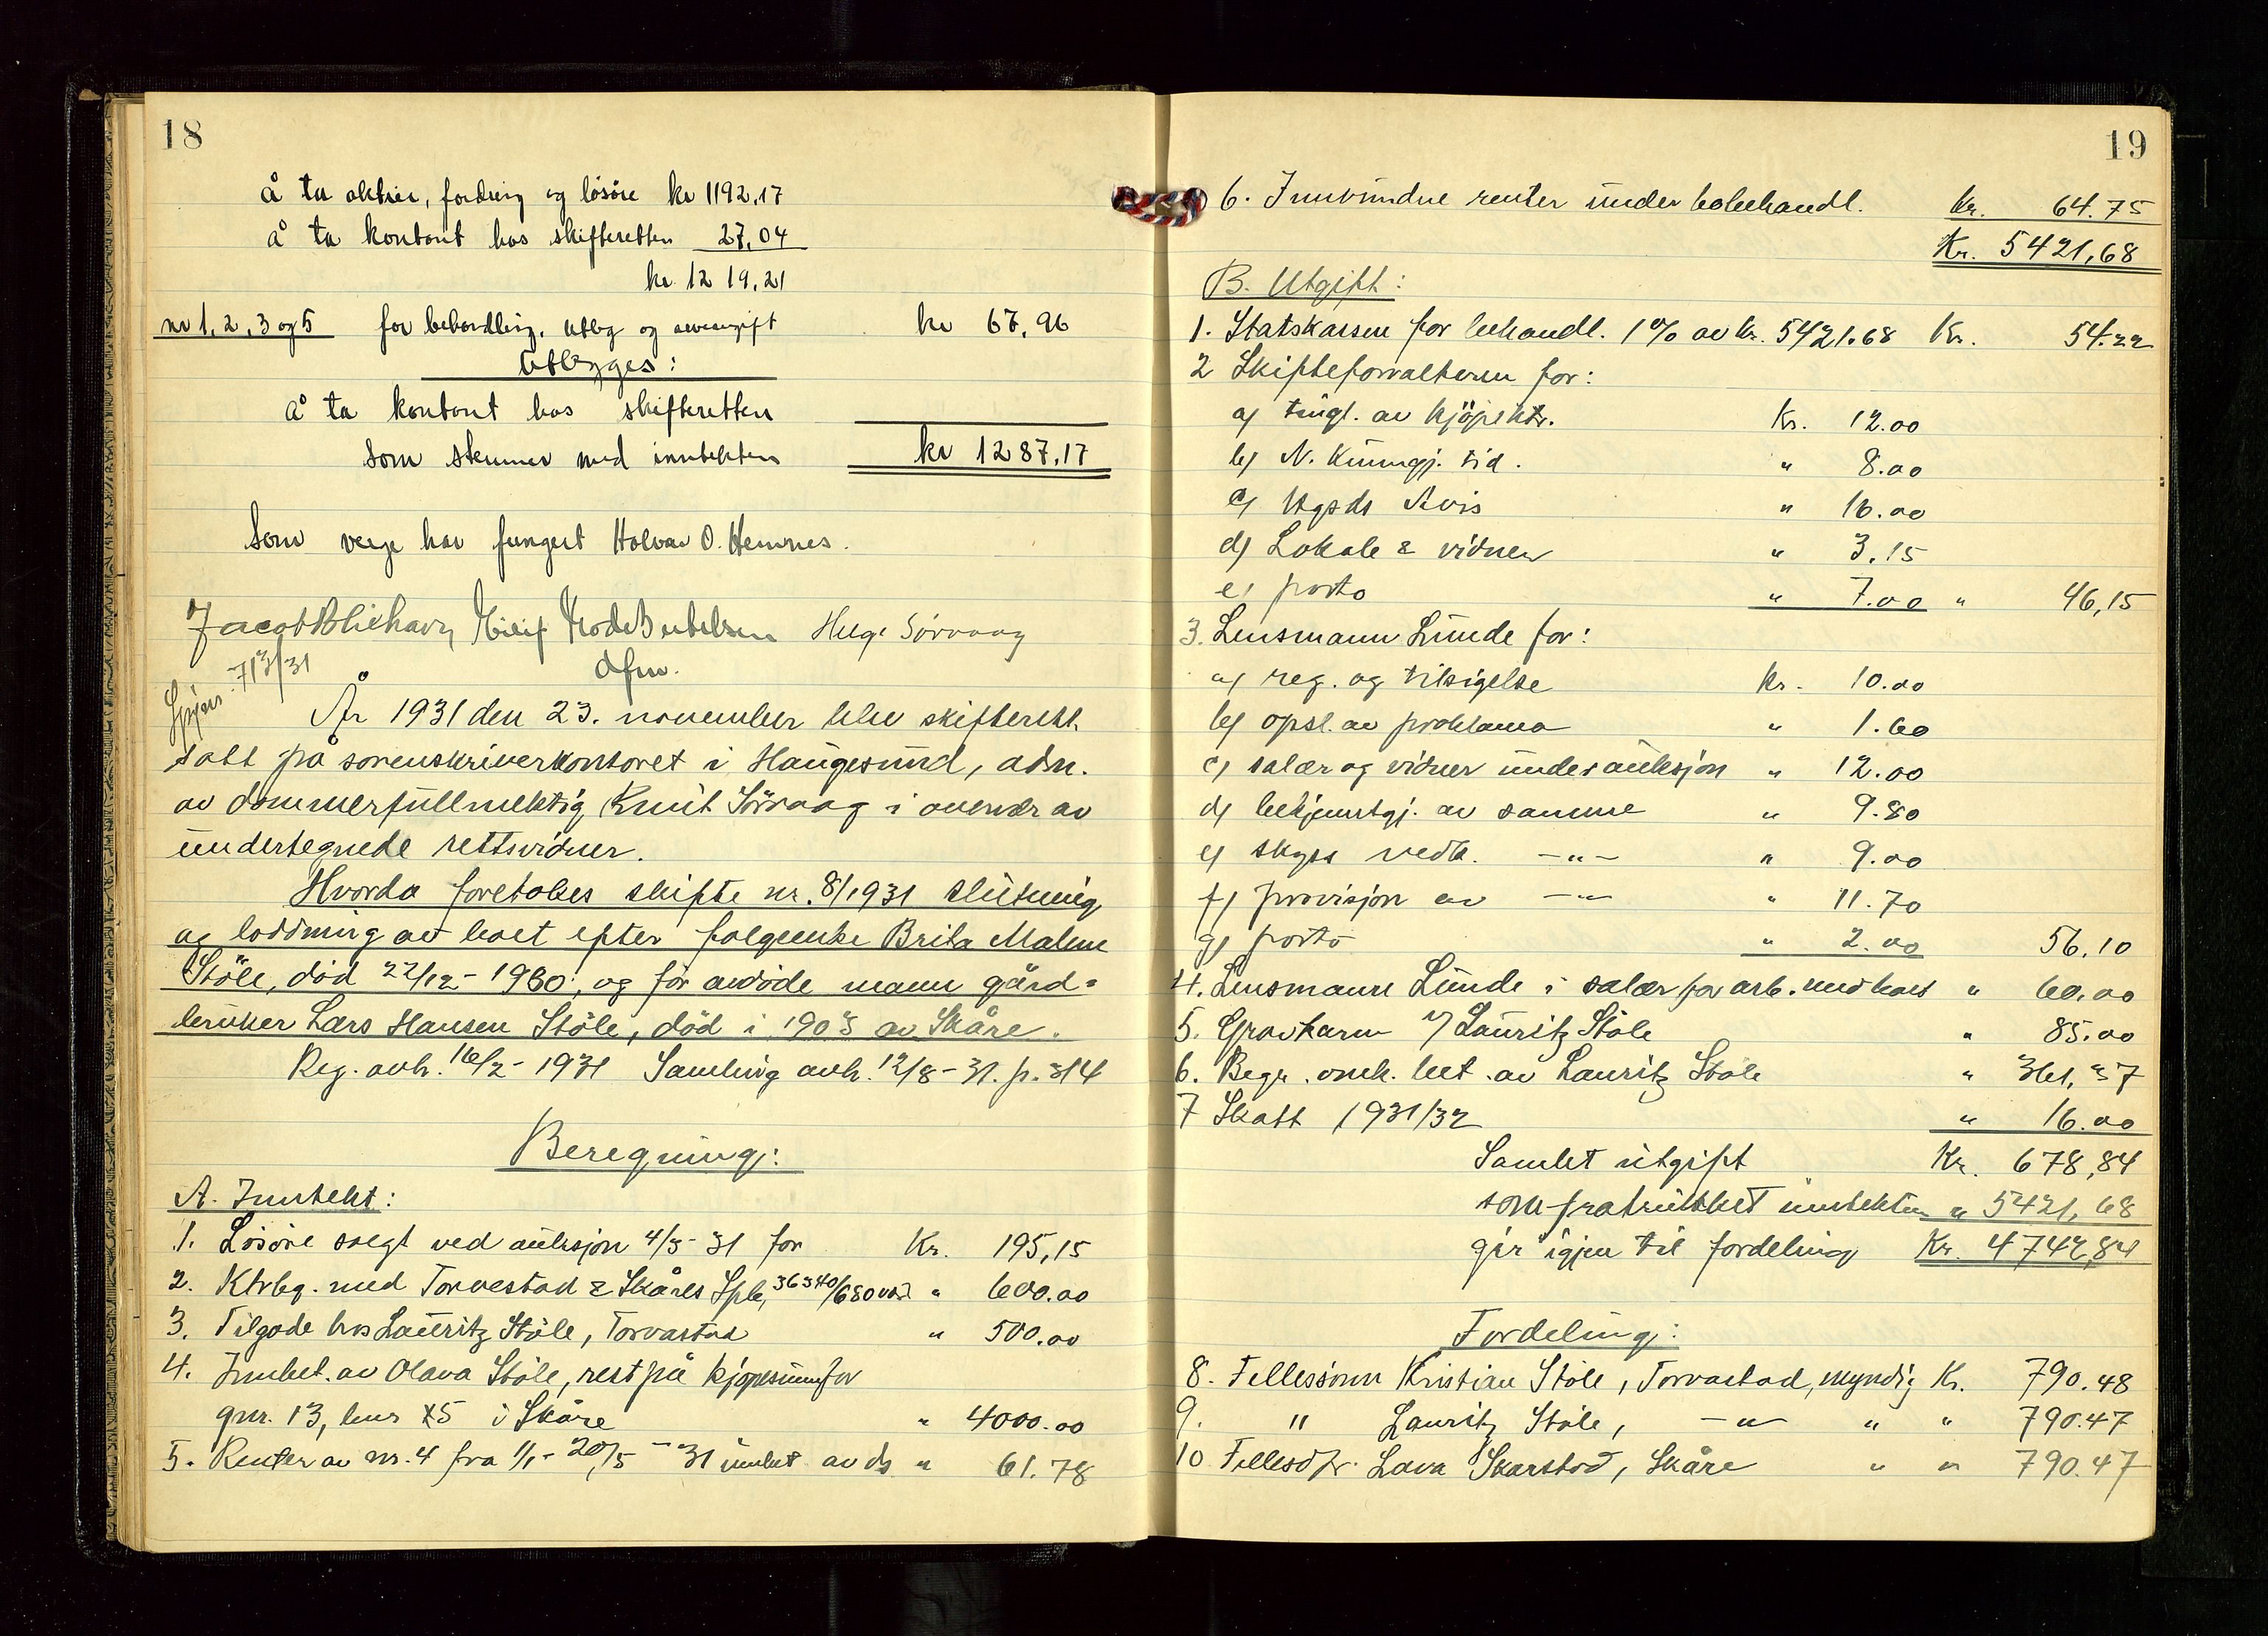 18
å ta aktier, fordring og løsøre kr 1192,17
å ta kontant hos skifteretten 27,04
kr 1219,21
nr 1, 2, 3 og 5 for behandling, utlegg og arveavgift kr 67,96
Utlegges:
å ta kontant hos skifteretten
som stemmer med inntekten kr 1287,17
Som verge har fungert Halvar O. Hemnes.
Helge Sørvaag
dfm.
7/3/31
År 1931 den 23. november blev skifterett
satt på sorenskriverkontoret i Haugesund, adm.
av dommerfullmektig Knut Sörvaag i overvær av
undertegnede rettsvidner.
Hvorda foretokes skifte nr. 8/1931 slutning
og loddning av boet efter følgeenke Brita Malene
Stöle, död 22/12-1930, og för avdöde mann gård=
bruker Lars Hansen Stöle, död i 1903 av Skåre.
Reg. avh. 16/2-1931 Samling avh. 12/8-31. p. 314
Beregning:
A. Inntekt:
1. Lösöre solgt ved auksjon 4/3-31 for Kr. 195,15
2. Ktrbg. med Torvestad & Skåres Spb, 36340/680 " 600.00
3. Tilgode hos Lauritz Stöle, Torvastad " 500.00
4. Innbet. av Olava Stöle, rest på kjøpesum for
gnr. 13, bnr 15 i Skåre " 4000.00
5. Renter av nr. 4 fra 1/1-20/5-31 innbet av ds " 61.78
19
6. Innvundne renter under bobehandl. Kr. 64.75
Kr. 5421,68
B. Utgift:
1. Statskassen for behandl. 1% av kr. 5421.68 Kr. 54.22
2 Skifteforvalteren for:
a) tingl. av kjöpektr. Kr. 12.00
b) N. Kunngj. tid. " 8.00
c) Hgsds Avis " 16.00
d) Lokale & vidner " 3.15
e) porto " 7.00 " 46,15
3. Lensmann Lunde for:
a) reg. og tilsigelse Kr. 10.00
b) opsl. av proklama " 1.60
c) salær og vidner under auksjon " 12.00
d) bekjentgj. av samme " 9.80
e) skyss vedk. -"- " 9.00
f) provisjon av -"- " 11.70
g) porto " 2.00 56,10
4. Lensmann Lunde i salær for arb. med boet " 60.00
5. Gravkarm v/ Lauritz Stöle " 85.00
6. Begr. omk. bet. av Lauritz Stöle " 361,37
7 Skatt 1931/32 " 16.00
Samlet utgift Kr. 678,84
som fratrukket inntekten " 5421,68
gir igjen til fordeling Kr. 4742,84
Fordeling:
8. Fellessönn Kristian Stöle, Torvastad, myndig Kr. 790.48
9. " Lauritz Stöle, -"- " " 790.47
10 Fellesdtr. Lava Skarstad, Skåre " " 790.47